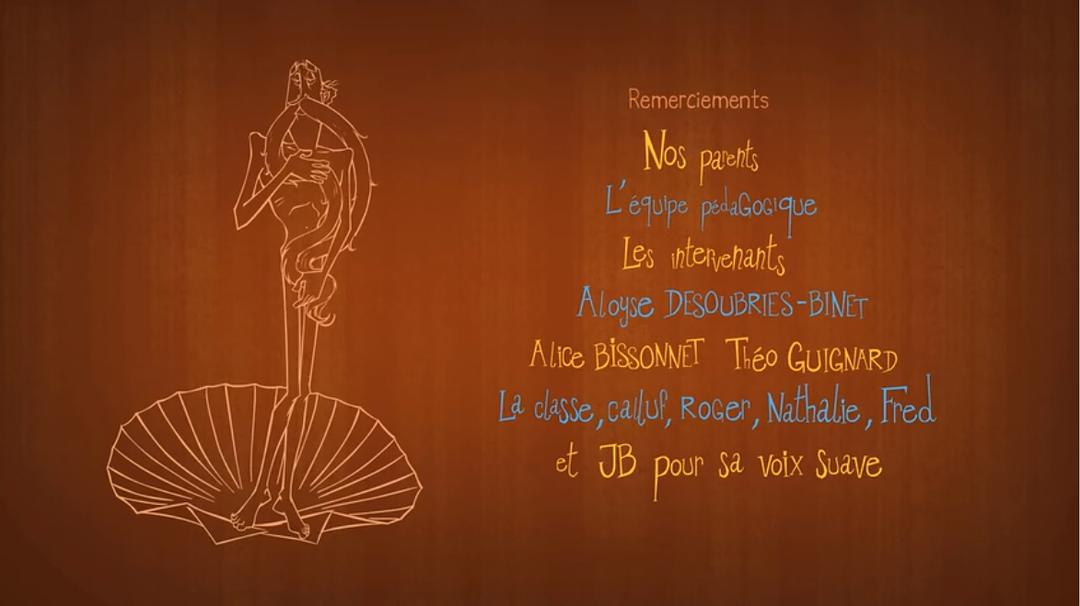 Remerciements
Nos parents
L'équipe pédaGogique
Les intervenants
Aloyse DESOUBRIES-BINET
Alice BISSONNET Théo GUIGNARD
La classe, cailluf, RoGer, Nathalie, Fred
et JB pour sa voix suave